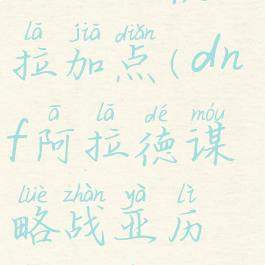 lā jiā diǎn
拉加点(dn
ā lā dé móu
f阿拉德谋
lüè zhàn yà lì
略战亚历